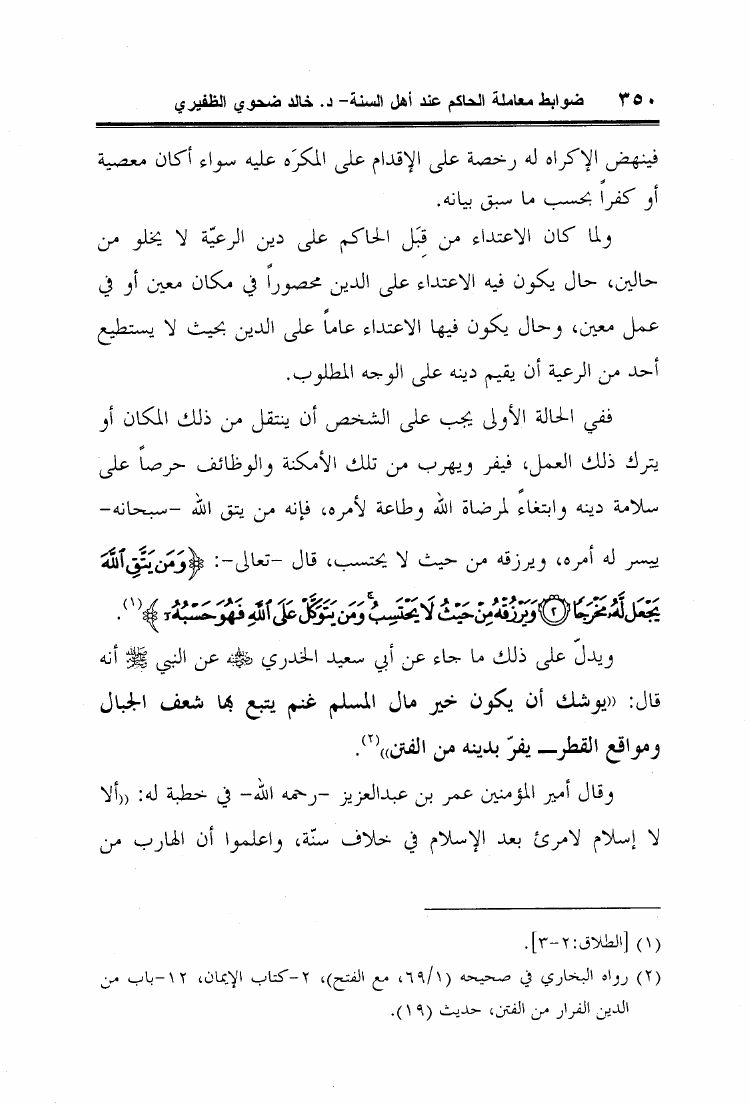 ٣٥٠ ضوابط معاملة الحاكم عند أهل السنة- د. خالد ضحوي الظفيري
فينهض الإكراه له رخصة على الإقدام على المكرَه عليه سواء أكان معصية
أو كفراً بحسب ما سبق بيانه.
ولما كان الاعتداء من قِبَل الحاكم على دين الرعيّة لا يخلو من
حالين، حال يكون فيه الاعتداء على الدين محصوراً في مكان معين أو في
عمل معين، وحال يكون فيها الاعتداء عاماً على الدين بحيث لا يستطيع
أحد من الرعية أن يقيم دينه على الوجه المطلوب.
ففي الحالة الأولى يجب على الشخص أن ينتقل من ذلك المكان أو
يترك ذلك العمل، فيفر ويهرب من تلك الأمكنة والوظائف حرصاً على
سلامة دينه وابتغاءً لمرضاة الله وطاعة لأمره، فإنه من يتق الله -سبحانه-
ييسر له أمره، ويرزقه من حيث لا يحتسب، قال -تعالى-: ﴿وَمَن يَتَّقِ ٱللَّهَ
يَجْعَل لَّهُۥ مَخْرَجًا ۝٢ وَيَرْزُقْهُ مِنْ حَيْثُ لَا يَحْتَسِبُ ۚ وَمَن يَتَوَكَّلْ عَلَى ٱللَّهِ فَهُوَ حَسْبُهُۥٓ﴾(١).
ويدلّ على ذلك ما جاء عن أبي سعيد الخدري رضي الله عنه عن النبي ﷺ أنه
قال: ((يوشك أن يكون خير مال المسلم غنم يتبع بها شعف الجبال
ومواقع القطر— يفرّ بدينه من الفتن))(٢).
وقال أمير المؤمنين عمر بن عبدالعزيز -رحمه الله- في خطبة له: ((ألا
لا إسلام لامرئ بعد الإسلام في خلاف سنّة، واعلموا أن الهارب من
(١) [الطلاق:٢-٣].
(٢) رواه البخاري في صحيحه (٦٩/١، مع الفتح)، ٢-كتاب الإيمان، ١٢-باب من
الدين الفرار من الفتن، حديث (١٩).